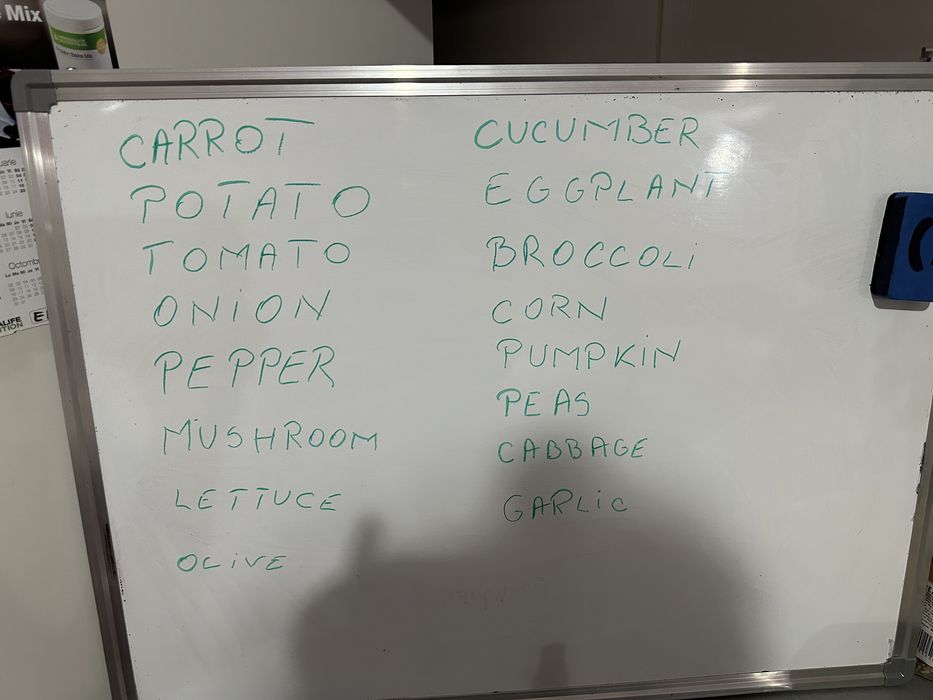 Mix
CARROT
POTATO
TOMATO
ONION
PEPPER
MUSHROOM
LETTUCE
OLIVE
CUCUMBER
EGGPLANT
BROCCOLI
CORN
PUMPKIN
PEAS
CABBAGE
GARLIC
Iunie